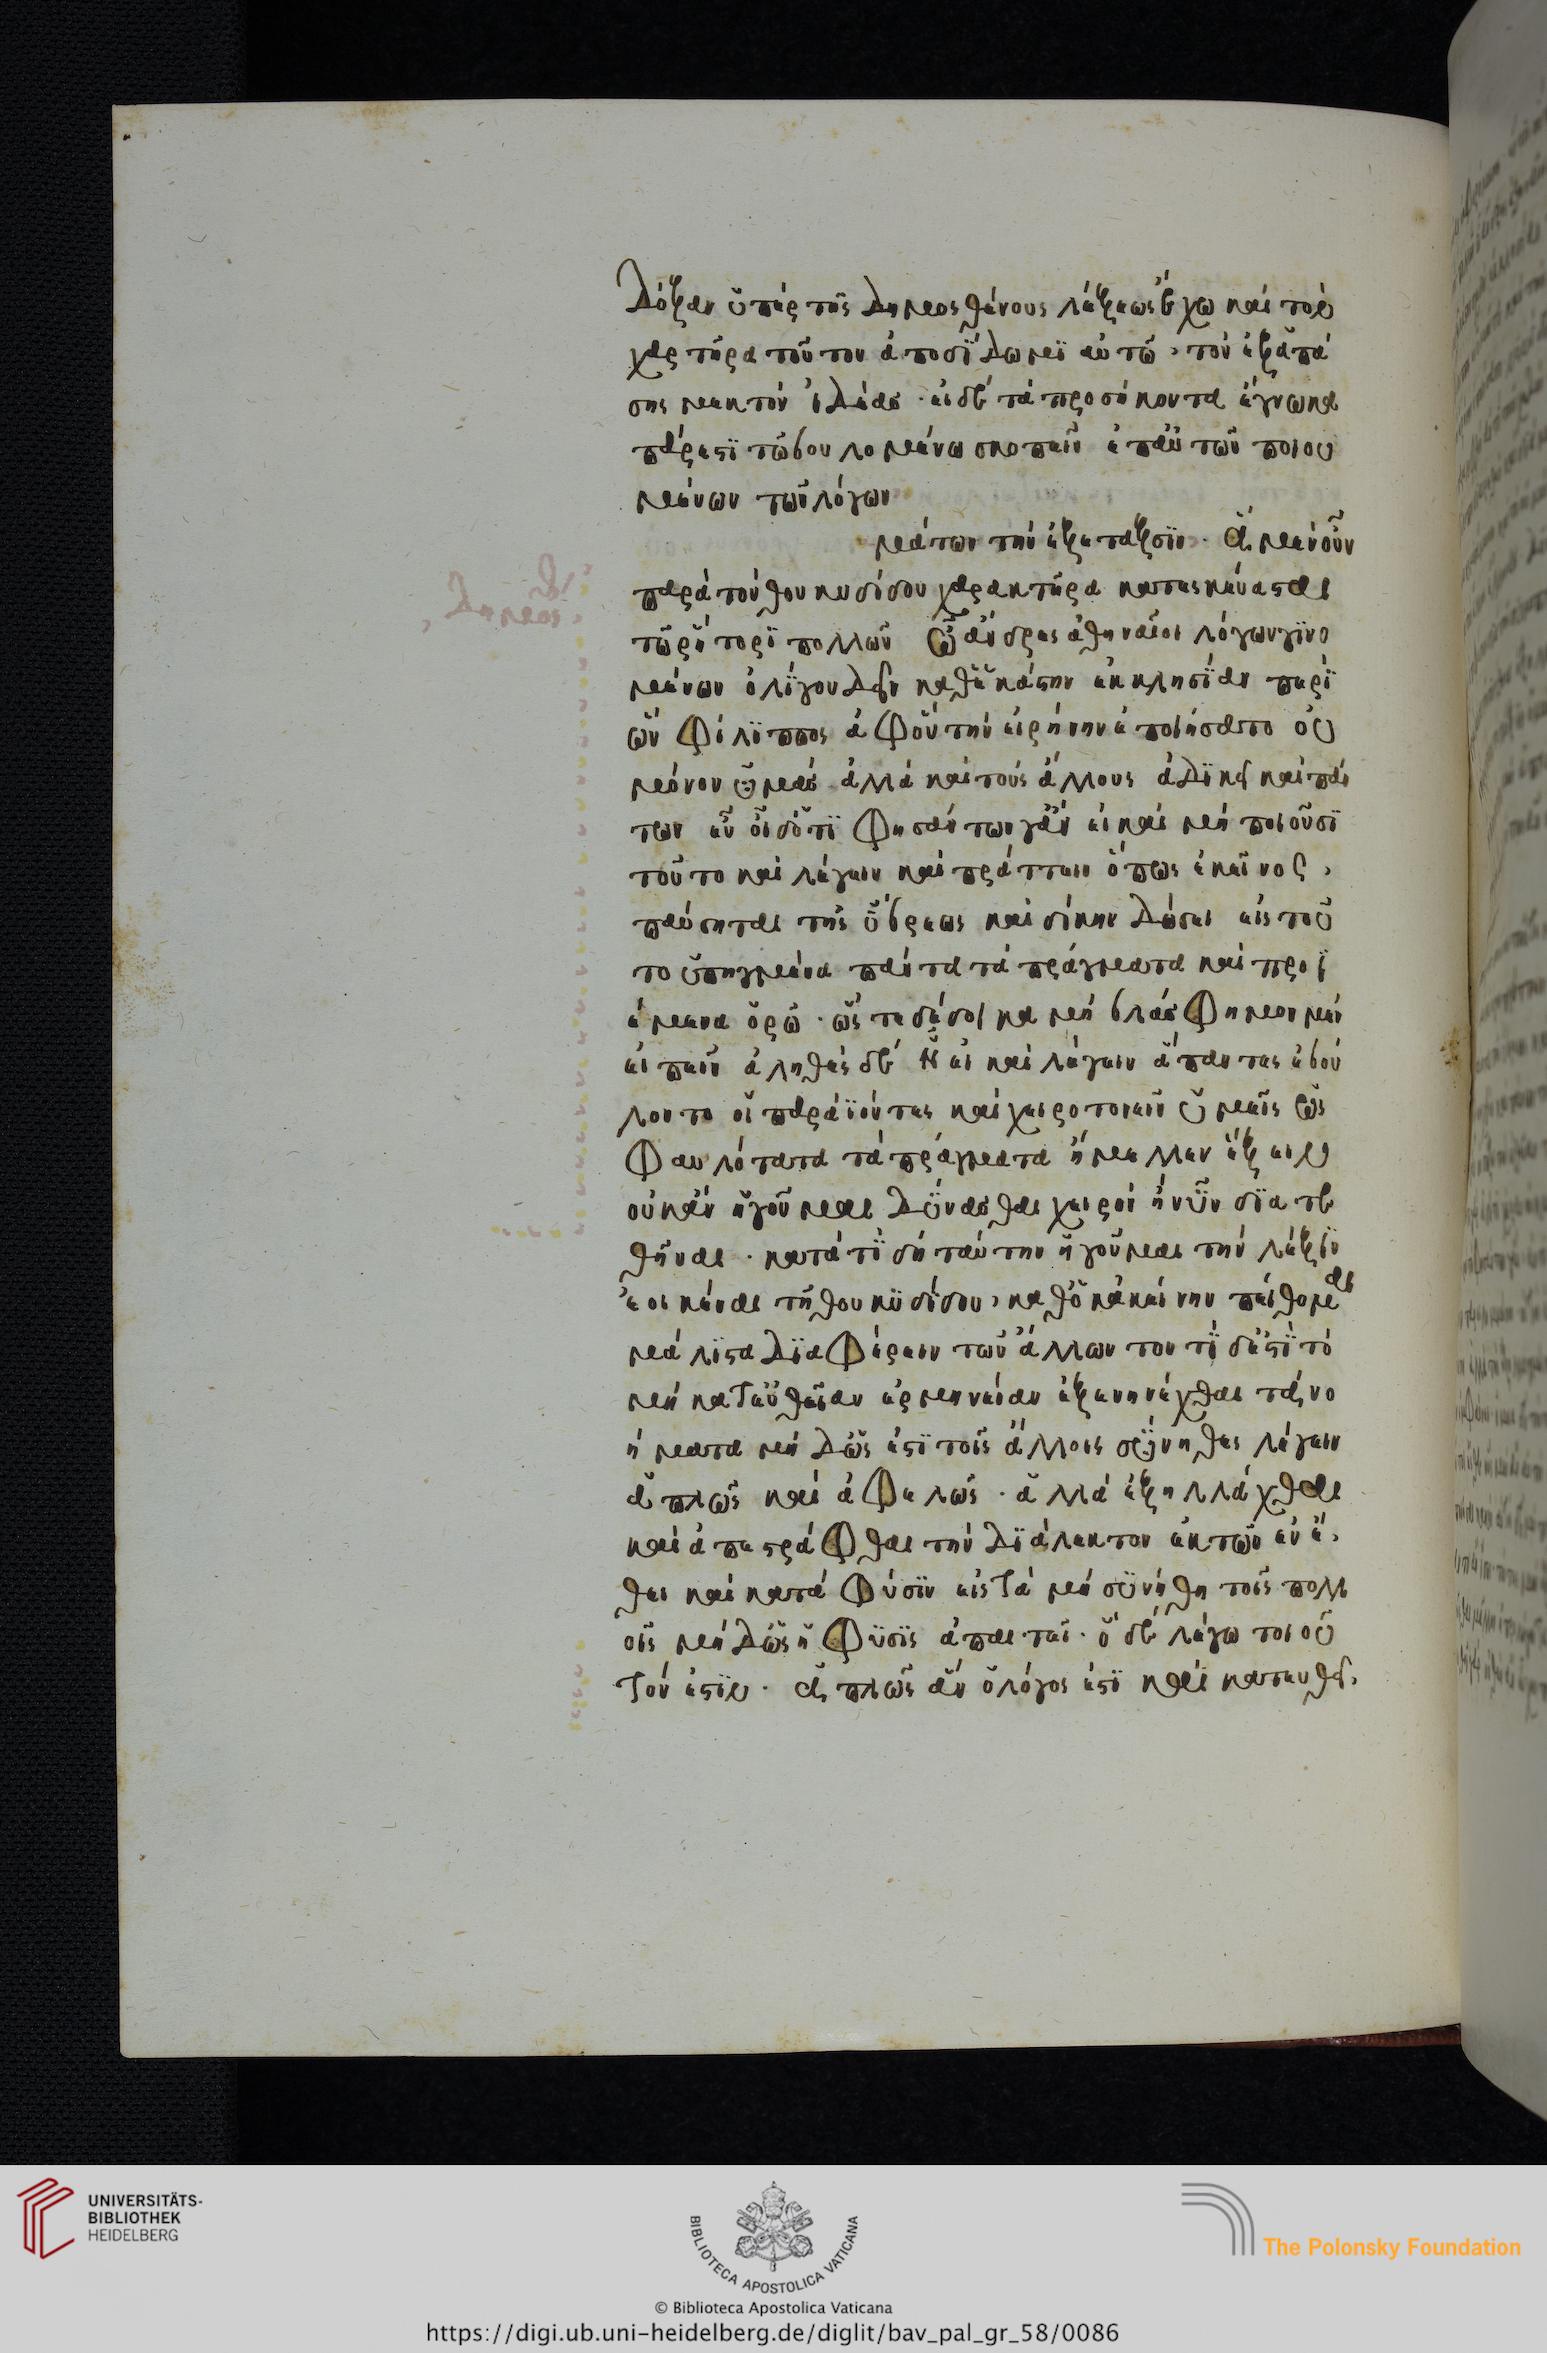 Δόξαν ὑπὲρ τῆς Δημοσθένους λέξεως ἔχω καὶ τὸν
χαρακτῆρα τοῦτον ἀποδίδωμι αὐτῶ, τὸν ἐξ ἁπά
σης μεικτὸν ἰδέας· εἰ δὲ τὰ προσήκοντα ἔγνωκα
πάρεστι τῶ βουλομένω σκοπεῖν ἐπ' αὐτῶν ποιου
μένων τῶν λόγων
μάτων τὴν ἐξέταξσιν· ἃ μὲν οὖν
παρὰ τὸν θουκυδίδου χαρακτῆρα κατεσκεύασται
Δημοσθ
τῶ ῥήτορι πολλῶν ὦ ἄνδρες ἀθηναῖοι λόγων γινο
μένων ὀλίγου δεῖν καθ' ἑκάστην ἐκκλησίαν περὶ
ὧν Φίλιππος ἀφ' οὗ τὴν εἰρήνην ἐποιήσατο οὐ
μόνον ὑμᾶς ἀλλὰ καὶ τοὺς ἄλλους ἀδικεῖ καὶ πάν
των εὖ οἶδ' ὅτι φησάντων γ' ἂν εἰ καὶ μὴ ποιοῦσι
τοῦτο καὶ λέγειν καὶ πράττειν ὅπως ἐκεῖνος,
παύσηται τῆς ὕβρεως καὶ δίκην δώσει εἰς τοῦ
το ὑπηγμένα πάντα τὰ πράγματα καὶ προϊ
έμενα ὁρῶ· ὥστε δέδοικα μὴ βλάσφημον μὲν
εἰπεῖν ἀληθὲς δὲ ἢ εἰ καὶ λέγειν ἅπαντες ἐβού
λοντο οἱ παριόντες καὶ χειροτονεῖν ὑμεῖς ὡς
φαυλότατα τὰ πράγματα ἤμελλεν ἕξειν
οὐκ ἂν ἡγοῦμαι δύνασθαι χεῖρον ἢ νῦν διατε
θῆναι· κατὰ τί δὴ ταύτην ἡγοῦμαι τὴν λέξιν
ἐοικέναι τῆ θουκυδίδου, καθ' ὃ κἀκείνην πείθομαι
μάλιστα διαφέρειν τῶν ἄλλων τοῦ τί δ' ἐστὶ τὸ
μὴ κατ' εὐθεῖαν ἑρμηνείαν ἐξενηνέχθαι τὰ νο
ήματα μηδ' ὡς ἐστὶ τοῖς ἄλλοις σύνηθες λέγειν
ἁπλῶς καὶ ἀφελῶς· ἀλλὰ ἐξηλλάχθαι
καὶ ἀπεστράφθαι τὴν διάλεκτον ἐκ τῶν ἐν ἔ
θει καὶ κατὰ φύσιν εἰς τὰ μὴ συνήθη τοῖς πολλ
οῖς μηδ' ὡς ἡ φύσις ἀπαιτεῖ· ὃ δὲ λέγω τοιοῦ
τόν ἐστιν· ἁπλῶς ἂν ὁ λόγος ἐστὶ καὶ κατευθεῖ
UNIVERSITÄTS-
BIBLIOTHEK
HEIDELBERG
BIBLIOTECA APOSTOLICA VATICANA
The Polonsky Foundation
© Biblioteca Apostolica Vaticana
https://digi.ub.uni-heidelberg.de/diglit/bav_pal_gr_58/0086